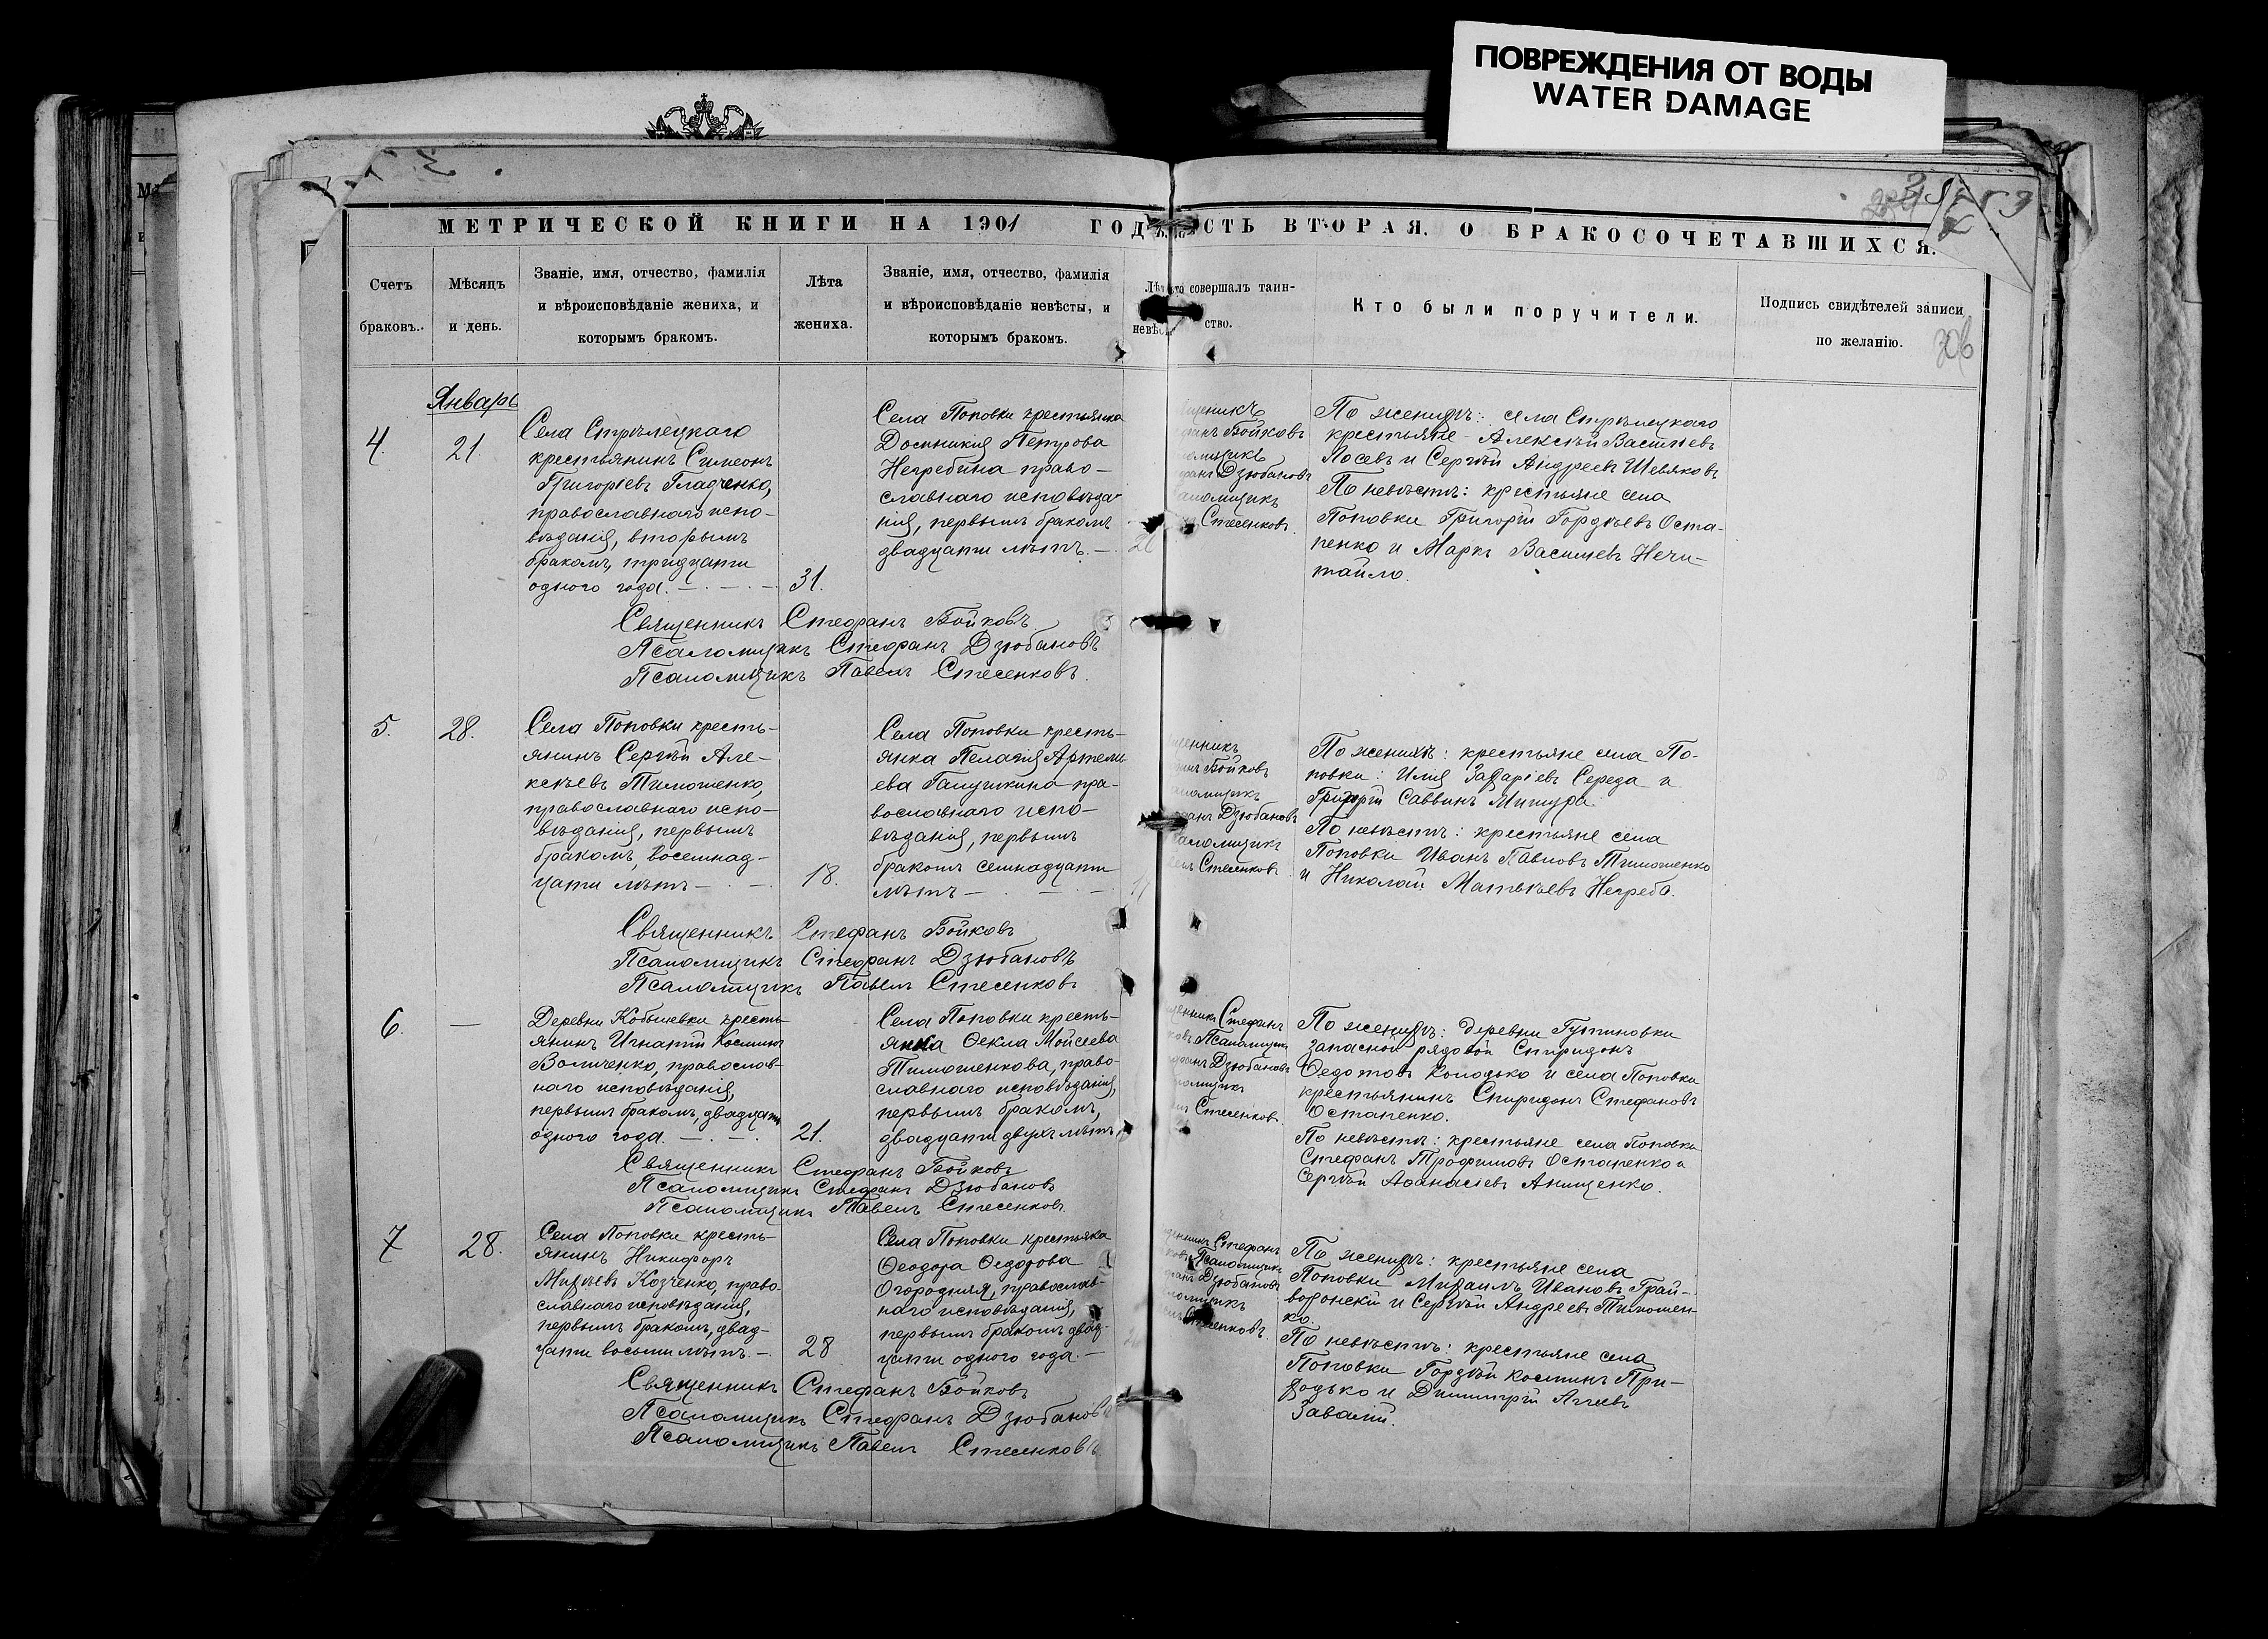 ПОВРЕЖДЕНИЯ ОТ ВОДЫ
WATER DAMAGE
МЕТРИЧЕСКОЙ КНИГИ НА 1901 ГОД
СТЬ ВТОРАЯ, О БРАКОСОЧЕТАВШИХСЯ.
Счетъ
браковъ.
Мѣсяцъ
и день.
Званіе, имя, отчество, фамилія
и вѣроисповѣданіе жениха, и
которымъ бракомъ.
Лѣта
жениха.
Званіе, имя, отчество, фамилія
и вѣроисповѣданіе невѣсты, и
которымъ бракомъ.
совершалъ таин-
ство.
Кто были поручители.
Подпись свидѣтелей записи
по желанію.
306
Январь
4.
21.
Села Стрѣлецкаго
крестьянинъ Симеонъ
Григоріевъ Гладченко,
православнаго испо-
вѣданія, вторымъ
бракомъ, тридцати
одного года.
31.
Села Поповки крестьянка
Домникія Петрова
Негребина право-
славнаго исповѣда-
нія, первымъ бракомъ
двадцати лѣтъ.
Бойковъ
Дзюбановъ
Стесенковъ
По женихѣ: села Стрѣлецкаго
крестьяне Алексѣй Васильевъ
Лосевъ и Сергѣй Андреевъ Шевяковъ
По невѣстѣ: крестьяне села
Поповки Григорій Гордѣевъ Оста-
пенко и Маркъ Васильевъ Нечи-
тайло.
Священникъ Стефанъ Бойковъ
Псаломщикъ Стефанъ Дзюбановъ
Псаломщикъ Павелъ Стесенковъ.
5.
28.
Села Поповки кресть-
янинъ Сергѣй Але-
ксѣевъ Тимошенко,
православнаго испо-
вѣданія, первымъ
бракомъ, восемнад-
цати лѣтъ
18.
Села Поповки кресть-
янка Пелагія Артемь-
ева пра-
вославнаго испо-
вѣданія, первымъ
бракомъ семнадцати
лѣтъ
Бойковъ
Дзюбановъ
Стесенковъ
По женихѣ: крестьяне села По-
повки: Илія Захаріевъ Середа и
Григорій Саввинъ Мишура.
По невѣстѣ: крестьяне села
Поповки Иванъ Павловъ Тимошенко
и Николай Матвѣевъ Негреба.
Священникъ Стефанъ Бойковъ
Псаломщикъ Стефанъ Дзюбановъ
Псаломщикъ Павелъ Стесенковъ
6.
—
Деревни Кобылевки кресть-
янинъ Игнатій Косминъ
Вольченко, православ-
наго исповѣданія,
первымъ бракомъ, двадцати
одного года.
21.
Села Поповки кресть-
янка Ѳекла Мойсеева
Тимошенкова, право-
славнаго исповѣданія,
первымъ бракомъ,
двадцати двухъ лѣтъ
Стефанъ
Псаломщикъ
Дзюбановъ
Стесенковъ
По женихѣ: деревни
запасной рядовой Спиридонъ
Ѳедотовъ Колодько и села Поповки
крестьянинъ Спиридонъ Стефановъ
Остапенко.
По невѣстѣ: крестьяне села Поповки
Стефанъ Трофимовъ Остапенко и
Сергѣй Аѳанасіевъ Анищенко.
Священникъ Стефанъ Бойковъ
Псаломщикъ Стефанъ Дзюбановъ
Псаломщикъ Павелъ Стесенковъ.
7
28.
Села Поповки кресть-
янинъ Никифоръ
Михѣевъ Козченко, право-
славнаго исповѣданія,
первымъ бракомъ, двад-
цати восьми лѣтъ.
28
Села Поповки крестьянка
Ѳеодора Ѳедорова
Огородняя, православ-
наго исповѣданія,
первымъ бракомъ двад-
цати одного года.
Стефанъ
Псаломщикъ
Дзюбановъ
По женихѣ: крестьяне села
Поповки Михаилъ Ивановъ Грай-
воронскій и Сергѣй Андреевъ Тимошен-
ко.
По невѣстѣ: крестьяне села
Поповки Гордѣй Косминъ При-
ходько и Димитрій Аггеевъ
Завалій.
Священникъ Стефанъ Бойковъ
Псаломщикъ Стефанъ Дзюбановъ
Псаломщикъ Павелъ Стесенковъ